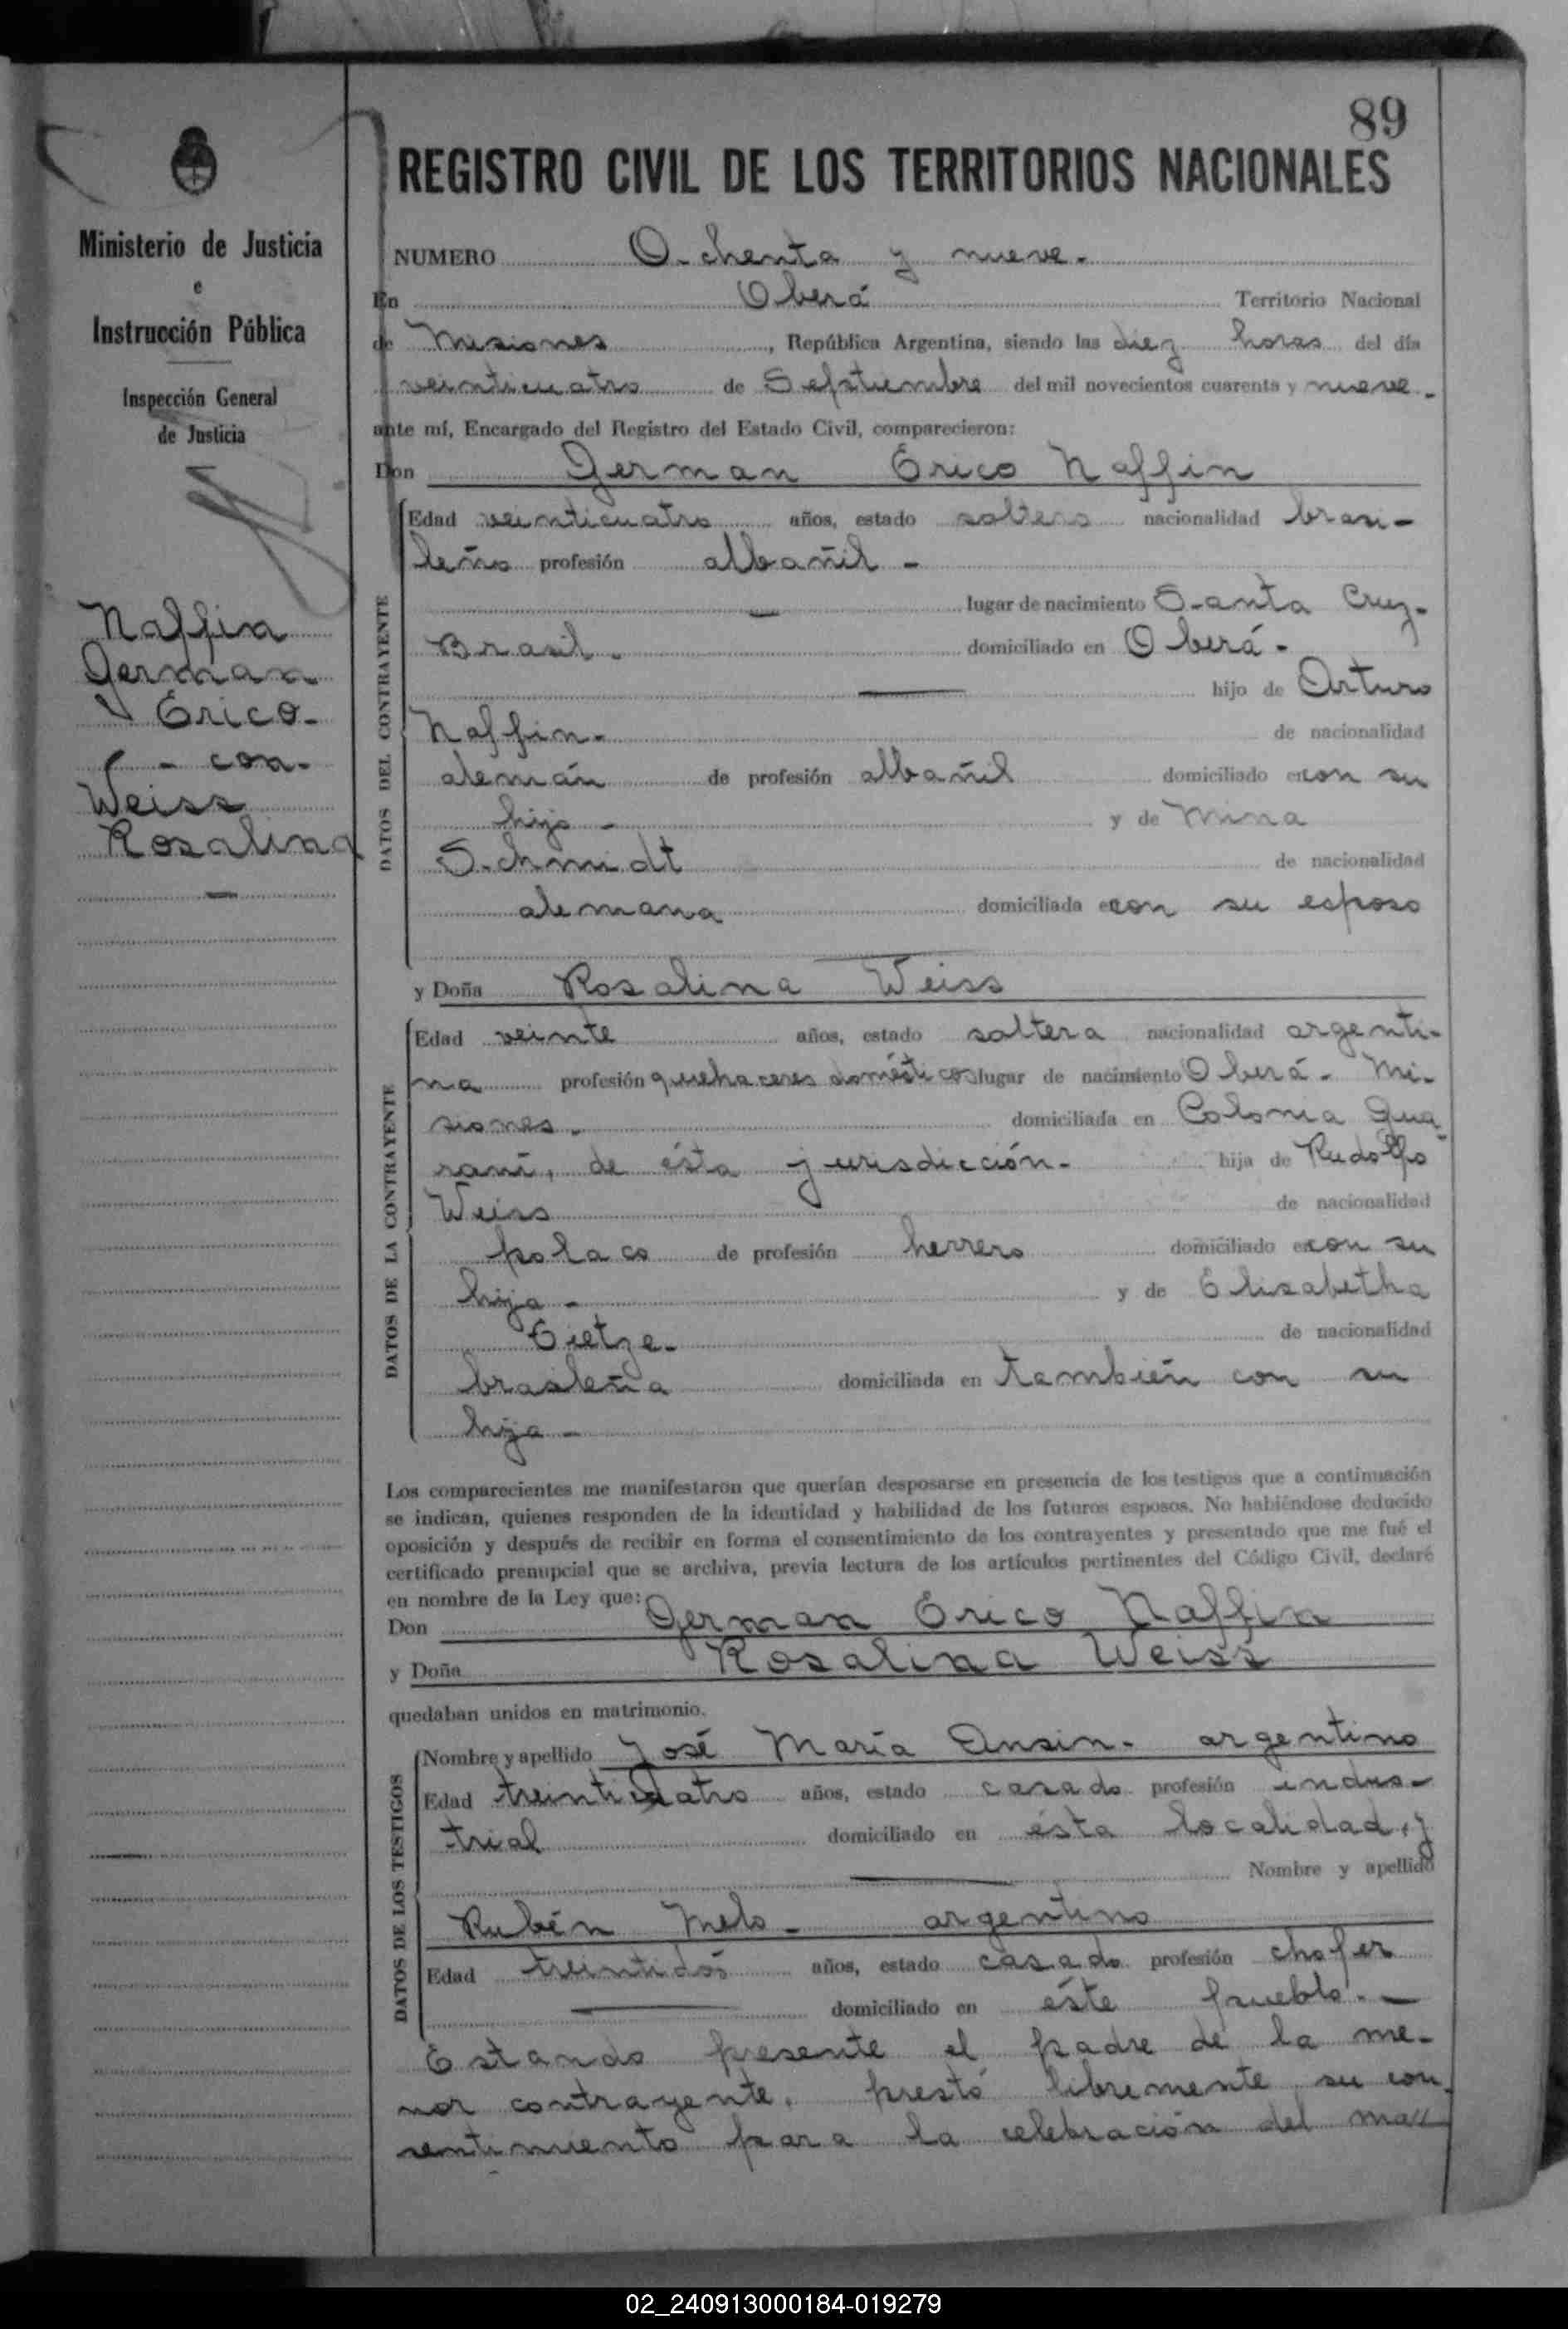 89
REGISTRO CIVIL DE LOS TERRITORIOS NACIONALES
Ministerio de Justicia
e
Instrucción Pública
Inspección General
de Justicia
Naffin
German
Erico-
- con-
Weiss
Rosalina
NUMERO Ochenta y nueve.
En Oberá Territorio Nacional
de Misiones, República Argentina, siendo las diez horas del día
veinticuatro de Septiembre del mil novecientos cuarenta y nueve.
ante mí, Encargado del Registro del Estado Civil, comparecieron:
Don German Erico Naffin
DATOS DEL CONTRAYENTE
Edad veinticuatro años, estado soltero nacionalidad brasi-
leño profesión albañil -
lugar de nacimiento Santa Cruz-
Brasil. domiciliado en Oberá-
hijo de Arturo
Naffin- de nacionalidad
alemán de profesión albañil domiciliado en con su
hijo - y de Mina
Schmidt de nacionalidad
alemana domiciliada en con su esposo
y Doña Rosalina Weiss
DATOS DE LA CONTRAYENTE
Edad veinte años, estado soltera nacionalidad argenti-
na profesión quehaceres domésticos lugar de nacimiento Oberá- Mi-
siones. domiciliada en Colonia Gua-
raní, de ésta jurisdicción- hija de Rudolfo
Weiss de nacionalidad
polaco de profesión herrero domiciliado en con su
hija - y de Elisabetha
Eietze- de nacionalidad
brasileña domiciliada en también con su
hija -
Los comparecientes me manifestaron que querían desposarse en presencia de los testigos que a continuación
se indican, quienes responden de la identidad y habilidad de los futuros esposos. No habiéndose deducido
oposición y después de recibir en forma el consentimiento de los contrayentes y presentado que me fué el
certificado prenupcial que se archiva, previa lectura de los artículos pertinentes del Código Civil, declaré
en nombre de la Ley que:
Don German Erico Naffin
y Doña Rosalina Weiss
quedaban unidos en matrimonio.
DATOS DE LOS TESTIGOS
Nombre y apellido José María Ansin- argentino
Edad treinticuatro años, estado casado profesión indus-
trial domiciliado en ésta localidad, y
Nombre y apellido
Rubén Melo- argentino
Edad treintidós años, estado casado profesión chofer
domiciliado en éste pueblo.-
Estando presente el padre de la me-
nor contrayente, prestó libremente su con-
sentimiento para la celebración del ma//
02_240913000184-019279